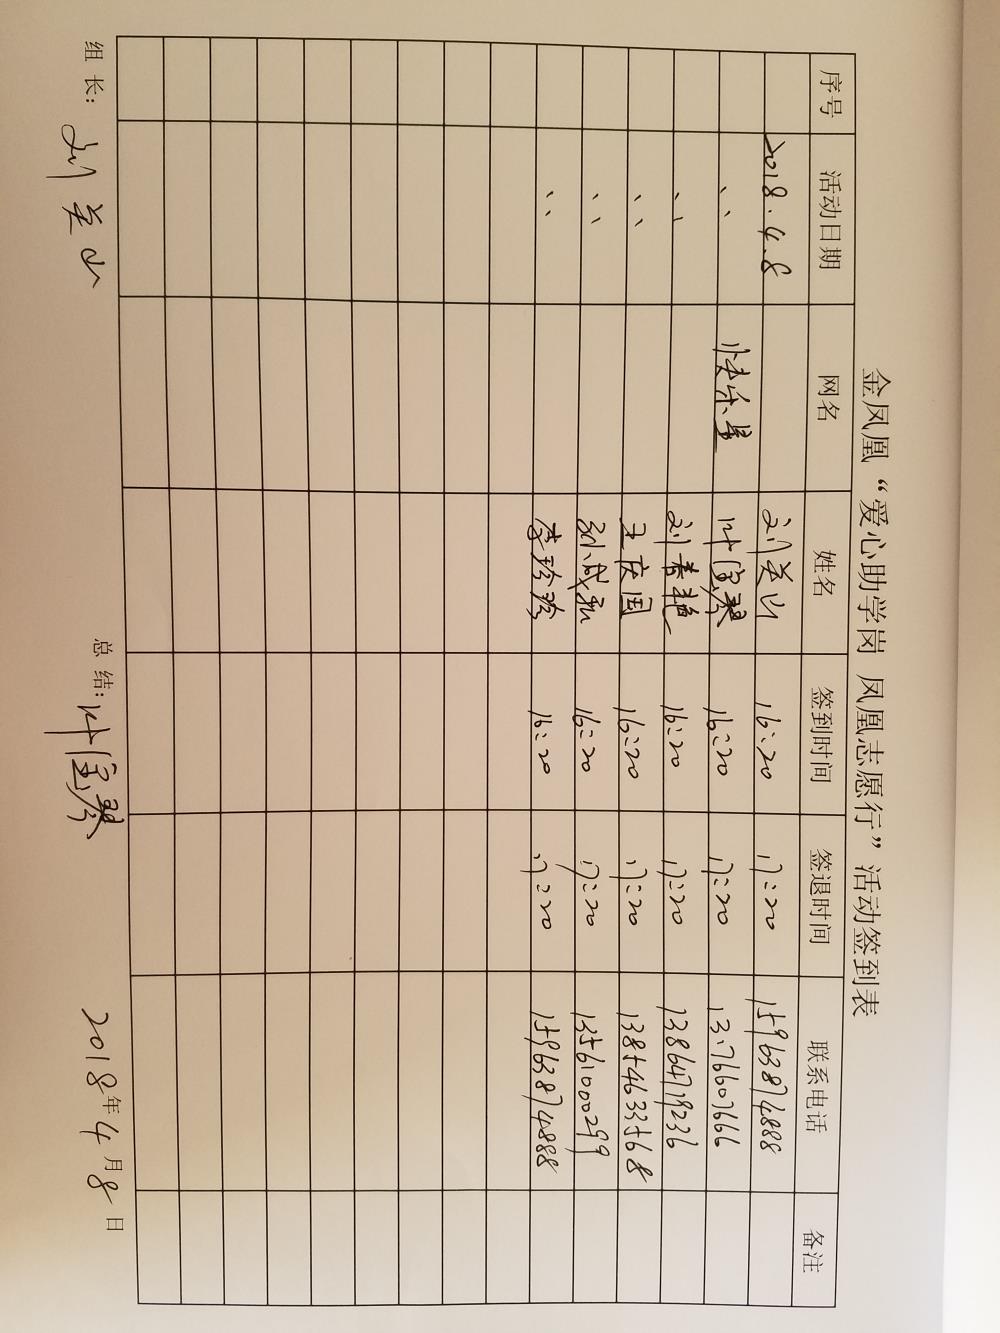 金凤凰“爱心助学岗 凤凰志愿行”活动签到表
序号 活动日期 网名 姓名 签到时间 签退时间 联系电话 备注
2018.4.8 刘关山 16:20 17:20 15963874888
、、 快乐星 叶宝琴 16:20 17:20 13176607666
、、 刘春艳 16:20 17:20 13864719236
、、 王庆国 16:20 17:20 13854633568
、、 孙成 16:20 17:20 13561000299
、、 李珍珍 16:20 17:20 15963874888
组长: 刘关山 总结: 叶宝琴 2018年4月8日